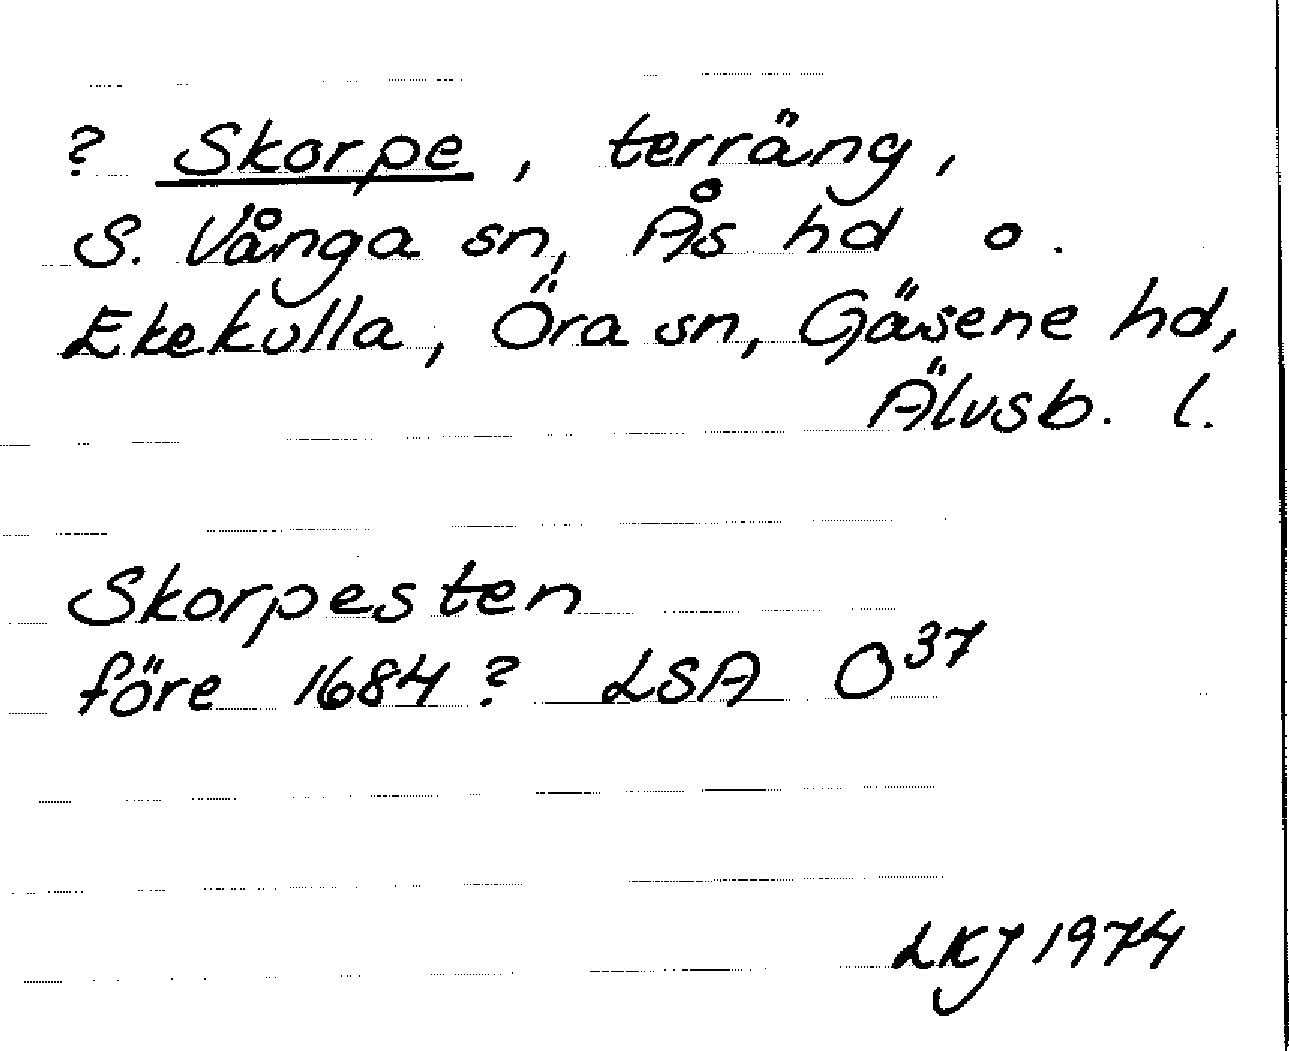 ? Skorpe, terräng,
S. Vånga sn, Ås hd o.
Ekekulla, Öra sn, Gäsene hd,
Älvsb. l.
Skorpesten
före 1684? LSA O³⁷
LKJ 1974